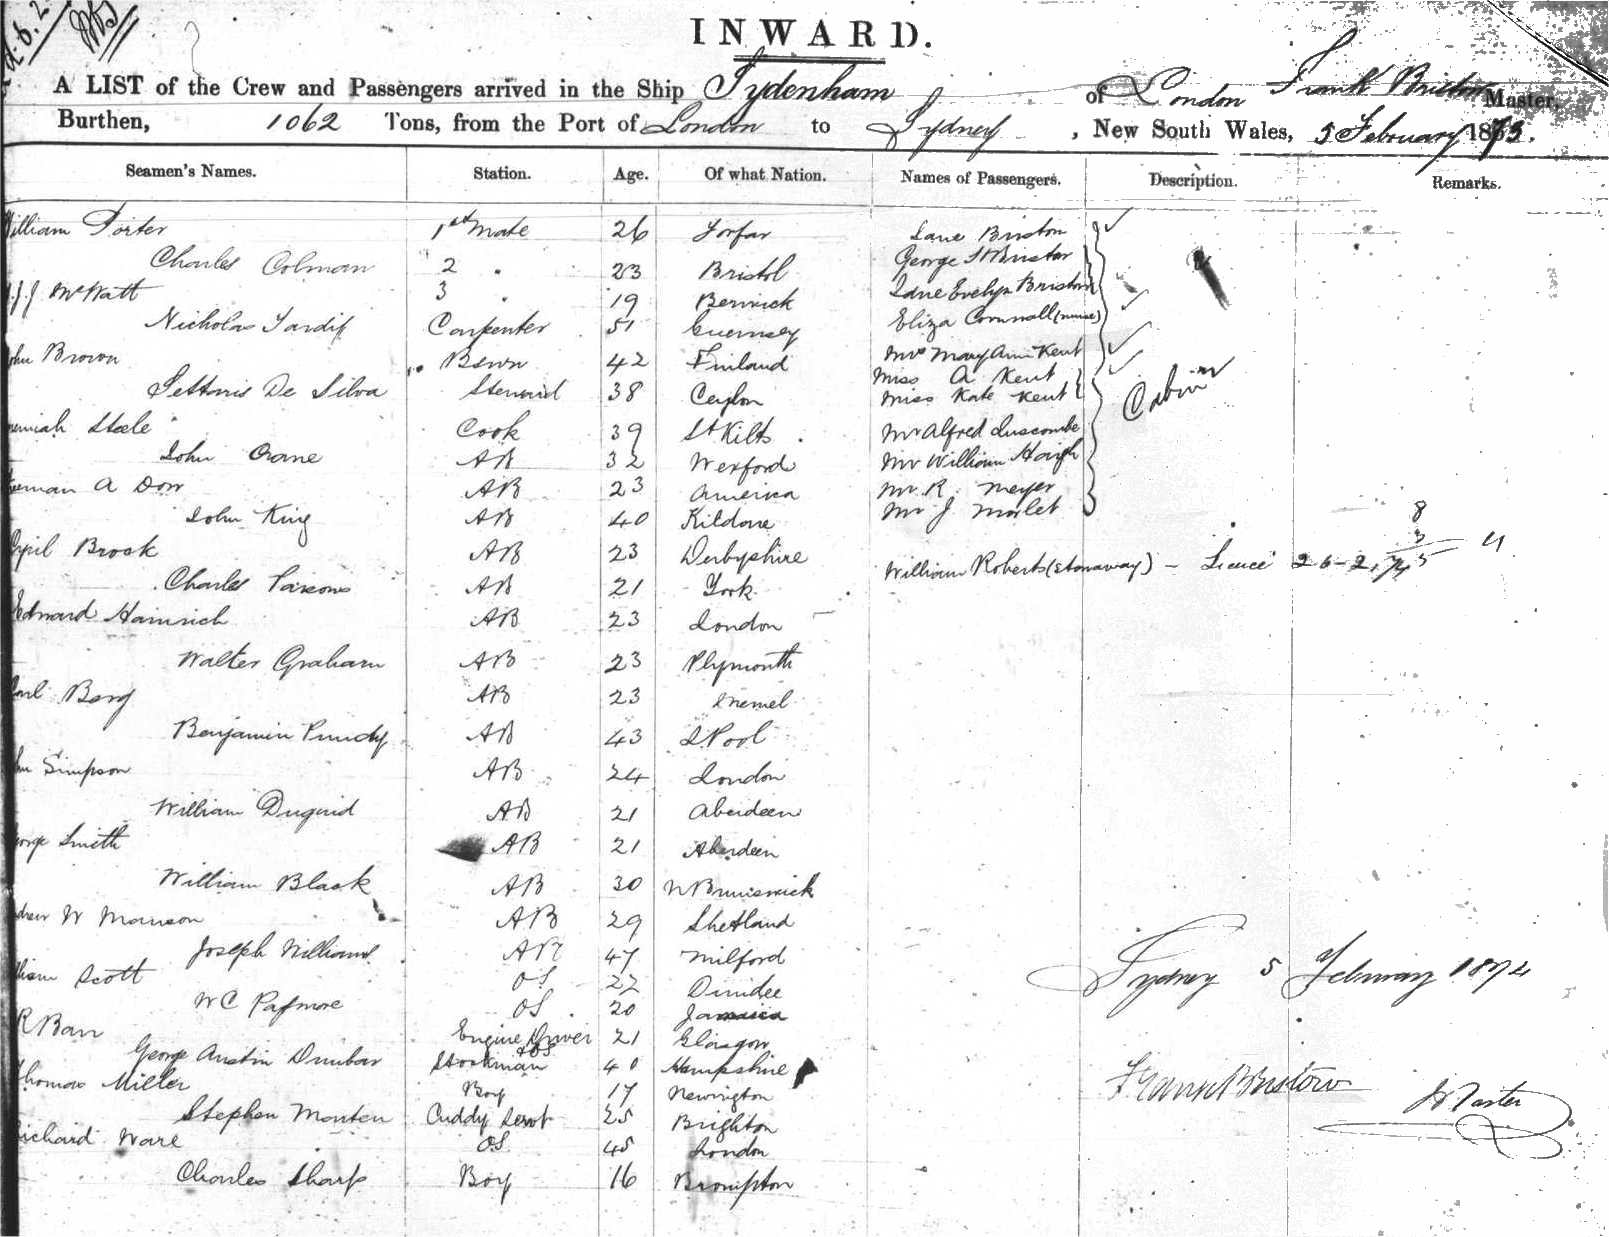 INWARD.
A LIST of the Crew and Passengers arrived in the Ship Sydenham of London Frank Bristow Master,
Burthen, 1062 Tons, from the Port of London to Sydney, New South Wales, 5 February 187
Seamen's Names. Station. Age. Of what Nation. Names of Passengers. Description. Remarks.
William Porter 1st Mate 26 Forfar Jane Bristow
Charles Colman 2 " 23 Bristol George Bristow
McWatt 3 " 19 Berwick Jane Evelyn Bristow
Nicholas Tardif Carpenter 51 Guernsey Eliza Cornwall (nurse)
John Brown Bswn 42 Finland Mrs Mary Ann Kent
De Silva Steward 38 Ceylon Miss A Kent
Miss Kate Kent Cabin
Steele Cook 39 St Kilts Mr Alfred Luscombe
John Crane AB 32 Wexford Mr William Haigh
A Dow AB 23 America Mr R. Meyer
John King AB 40 Kildare Mr J Morlet 8
Brook AB 23 Derbyshire William Roberts (stowaway)
Charles Parsons AB 21 York
Edward Hainrich AB 23 London
Walter Graham AB 23 Plymouth
Berg AB 23 Memel
Benjamin Purdy AB 43 LPool
Simpson AB 24 London
William Duguid AB 21 Aberdeen
George Smith AB 21 Aberdeen
William Black AB 30 N Brunswick
Andrew W Manson AB 29 Shetland
Joseph Williams AB 47 Milford
William Scott OS 22 Dundee Sydney 5 February 1874
W C Pasmore OS 20 Jamaica
R Barr Engine Driver 21 Glasgow
George Austin Dunbar Stockman & OS 40 Hampshire
Thomas Miller Boy 17 Newington Frank Bristow
Stephen Monten Cuddy Servt 25 Brighton
Richard Ware OS 45 London
Charles Sharp Boy 16 Brompton